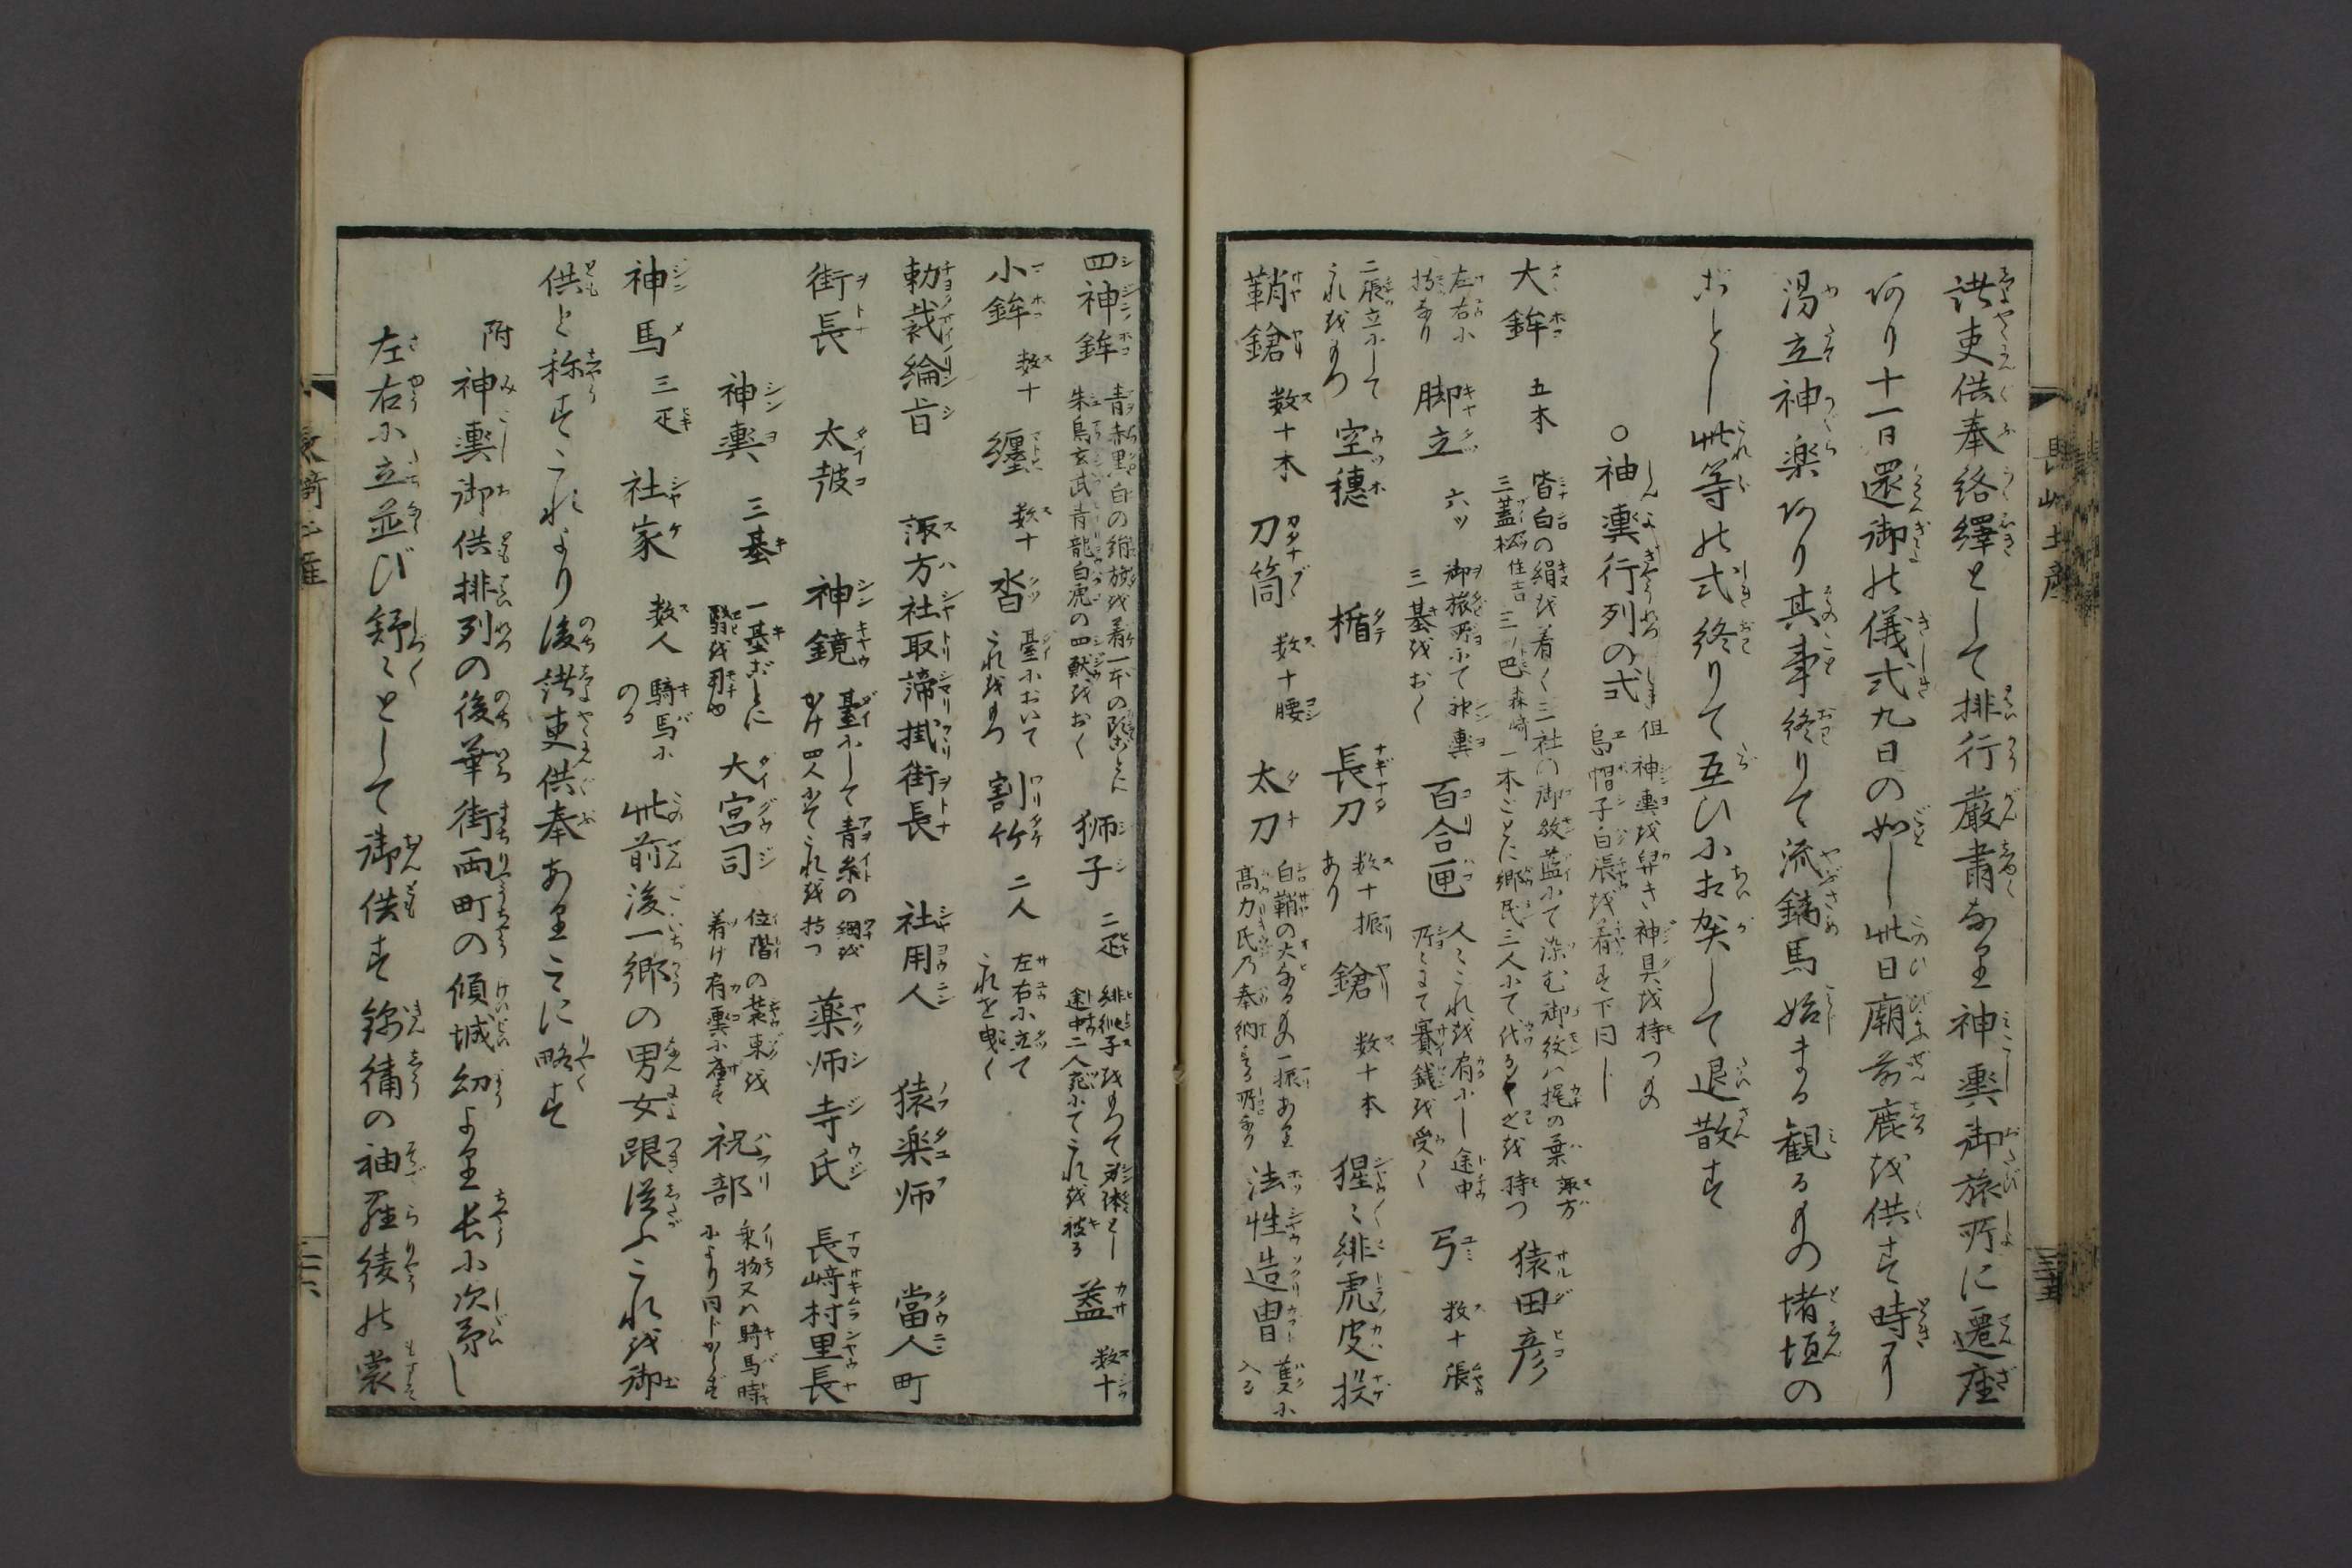 諸吏供奉絡繹として排行厳肅なり神輿御旅所に遷座
あり十一日還御の儀式九日の如し此日廟前鹿を供す時より
湯立神楽あり其事終りて流鏑馬始まる観るもの堵垣の
ごとし此等の式終りて互ひに相賀して退散す
○神輿行列の式
但神輿を舁き神具を持つもの
烏帽子白張を着す下同じ
大鉾 五本
皆白の絹を着く三社の御紋藍にて染む御紋ハ梶の葉諏方
三蓋松住吉三ノ巴森崎一本ごとに郷民三人にて代る〳〵之を持つ
猿田彦
左右に
持なり
脚立 六ツ
御旅所にて神輿
三基をおく
百合匣
人々これを肩にし途中
所々にて賽銭を受く
弓 数十張
二張立にして
これをもつ
空穂 楯 長刀
数十振
あり
鎗 数十本 猩々緋虎皮投
鞘鎗 数十本 刀筒 数十腰 太刀
白鞘の大なるもの一振あり
高力氏乃奉納する所也
法性造冑
隻に
入る
四神鉾
青赤黒白の絹旗を着一本の隅ごとに
朱鳥玄武青龍白虎の四獣をおく
獅子 二疋
緋純子をもつて身体とし
途中二人宛にてこれを被る
蓋 数十
小鉾 数十 纏 数十 沓
臺において
これをもつ
割竹 二人
左右に立て
これを曳く
勅裁綸旨 諏方社取諦掛街長 社用人 猿楽师 當人町
街長 太皷 神鏡
臺にして青糸の綱を
かけ四人にてこれを持つ
薬师寺氏 長﨑村里長
神輿 三基
一基ごとに
翳を用ゆ
大宮司
位階の装束を
着け肩輿に座す
祝部
乗物又ハ騎馬時
により同じからず
神馬 三疋 社家 数人
騎馬に
のる
此前後一郷の男女跟従ふこれを御
供と称すこれより後諸吏供奉あり玆に略す
附 神輿御供排列の後華街両町の傾城幼より長に次第し
左右に立並び舒々として御供す錦繡の袖羅綾の裳
長崎土産